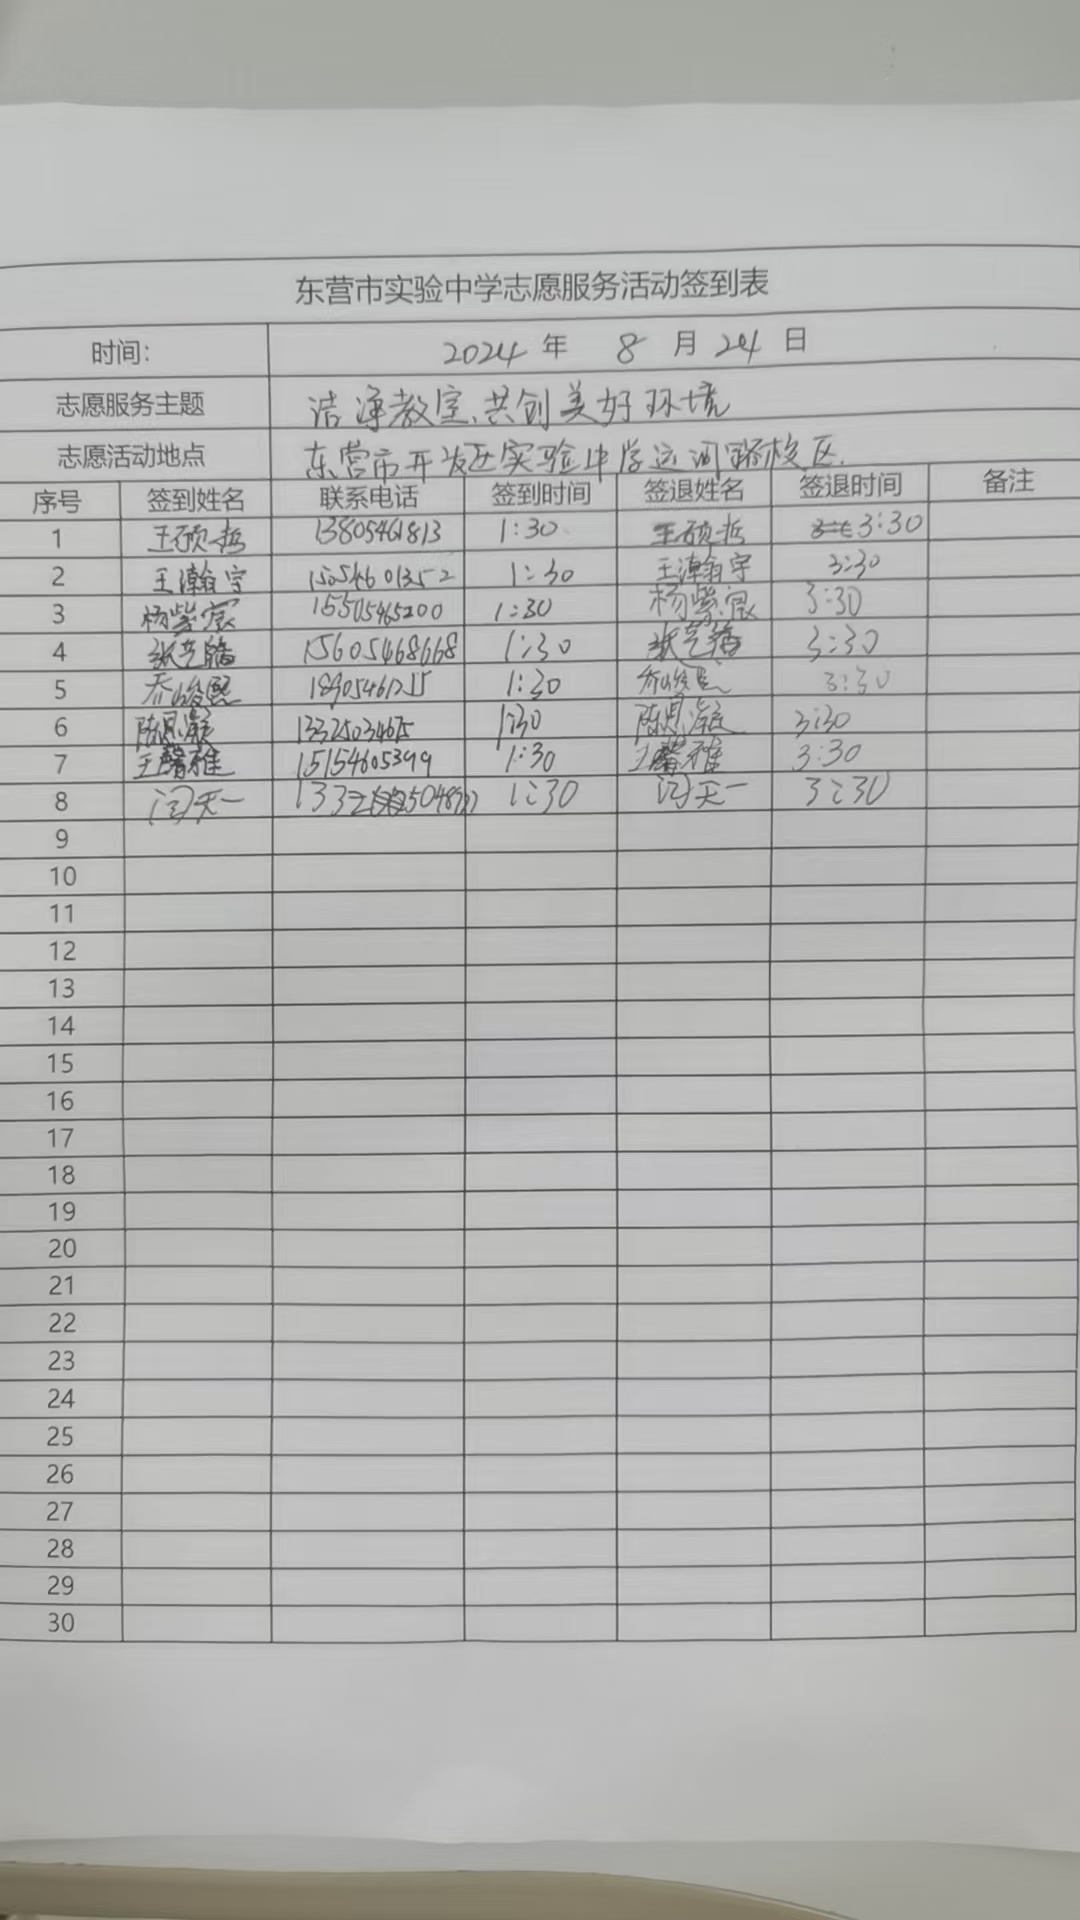 东营市实验中学志愿服务活动签到表
时间: 2024 年 8 月 24 日
志愿服务主题 洁净教室、共创美好环境
志愿活动地点 东营市开发区实验中学运河路校区.
序号 签到姓名 联系电话 签到时间 签退姓名 签退时间 备注
1 王硕哲 13805461813 1:30 王硕哲 3:30
2 王瀚宇 15054601352 1:30 王瀚宇 3:30
3 杨紫宸 15505465200 1:30 杨紫宸 3:30
4 15605468668 1:30 3:30
5 乔峻熙 1:30 3:30
6 陈思凝 1:30 陈思凝 3:30
7 王馨雅 15154605399 1:30 王馨雅 3:30
8 闫天一 1:30 闫天一 3:30
9
10
11
12
13
14
15
16
17
18
19
20
21
22
23
24
25
26
27
28
29
30